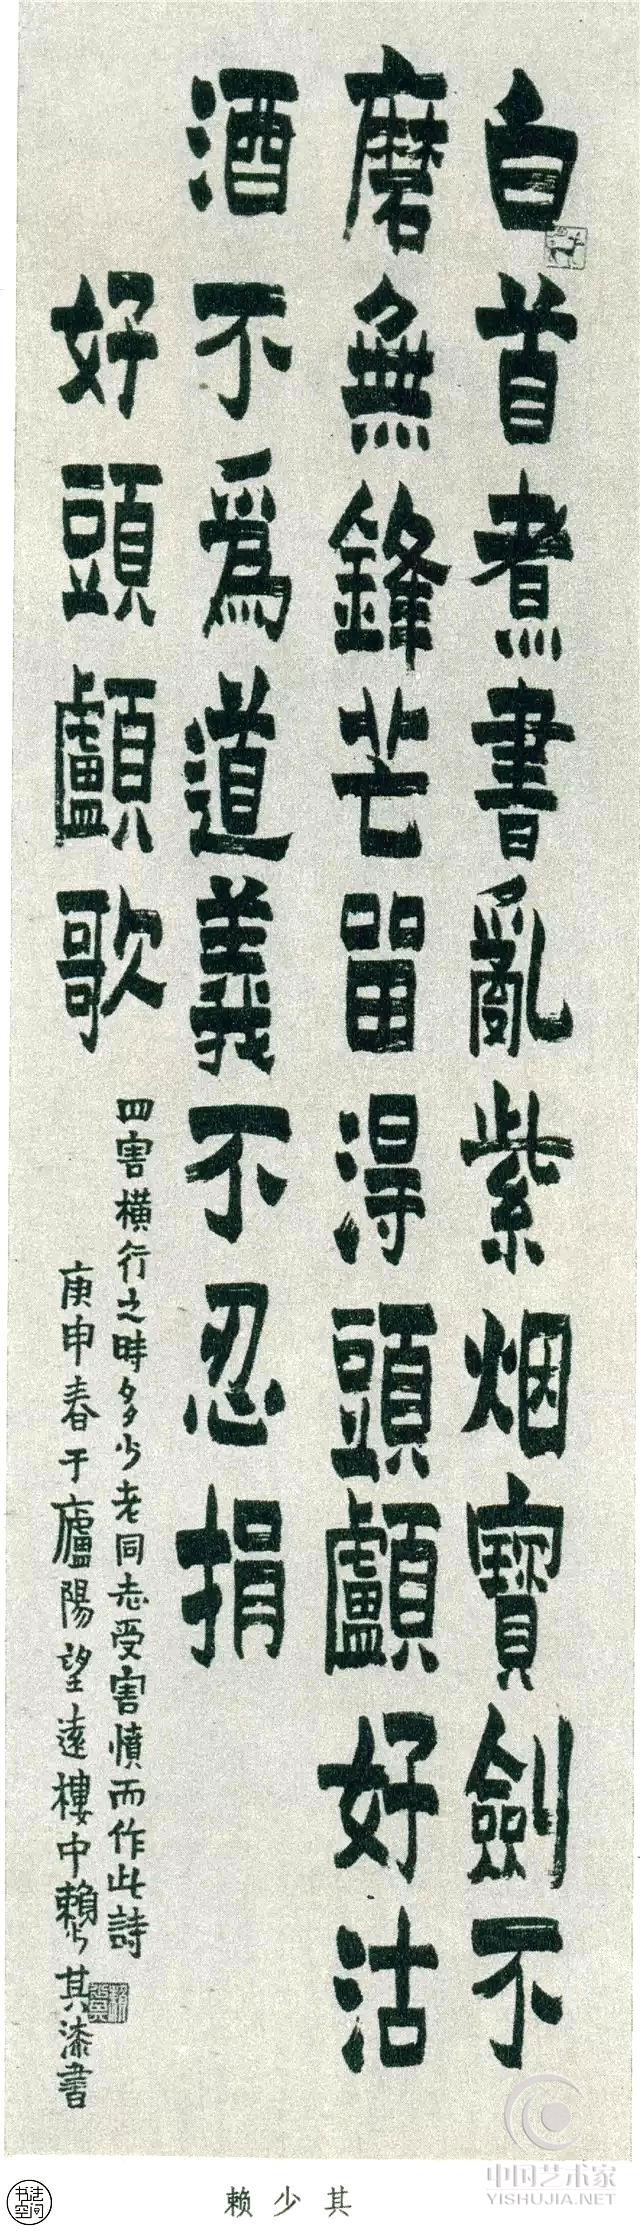 白首煮書亂紫烟寶劍不
磨無鋒芒留得頭顱好沽
酒不爲道義不忍捐
好頭顱歌
四害橫行之時多少老同志受害憤而作此詩
庚申春于廬陽望遠樓中賴少其漆書
賴少其
书法空间
中国艺术家
YISHUJIA.NET